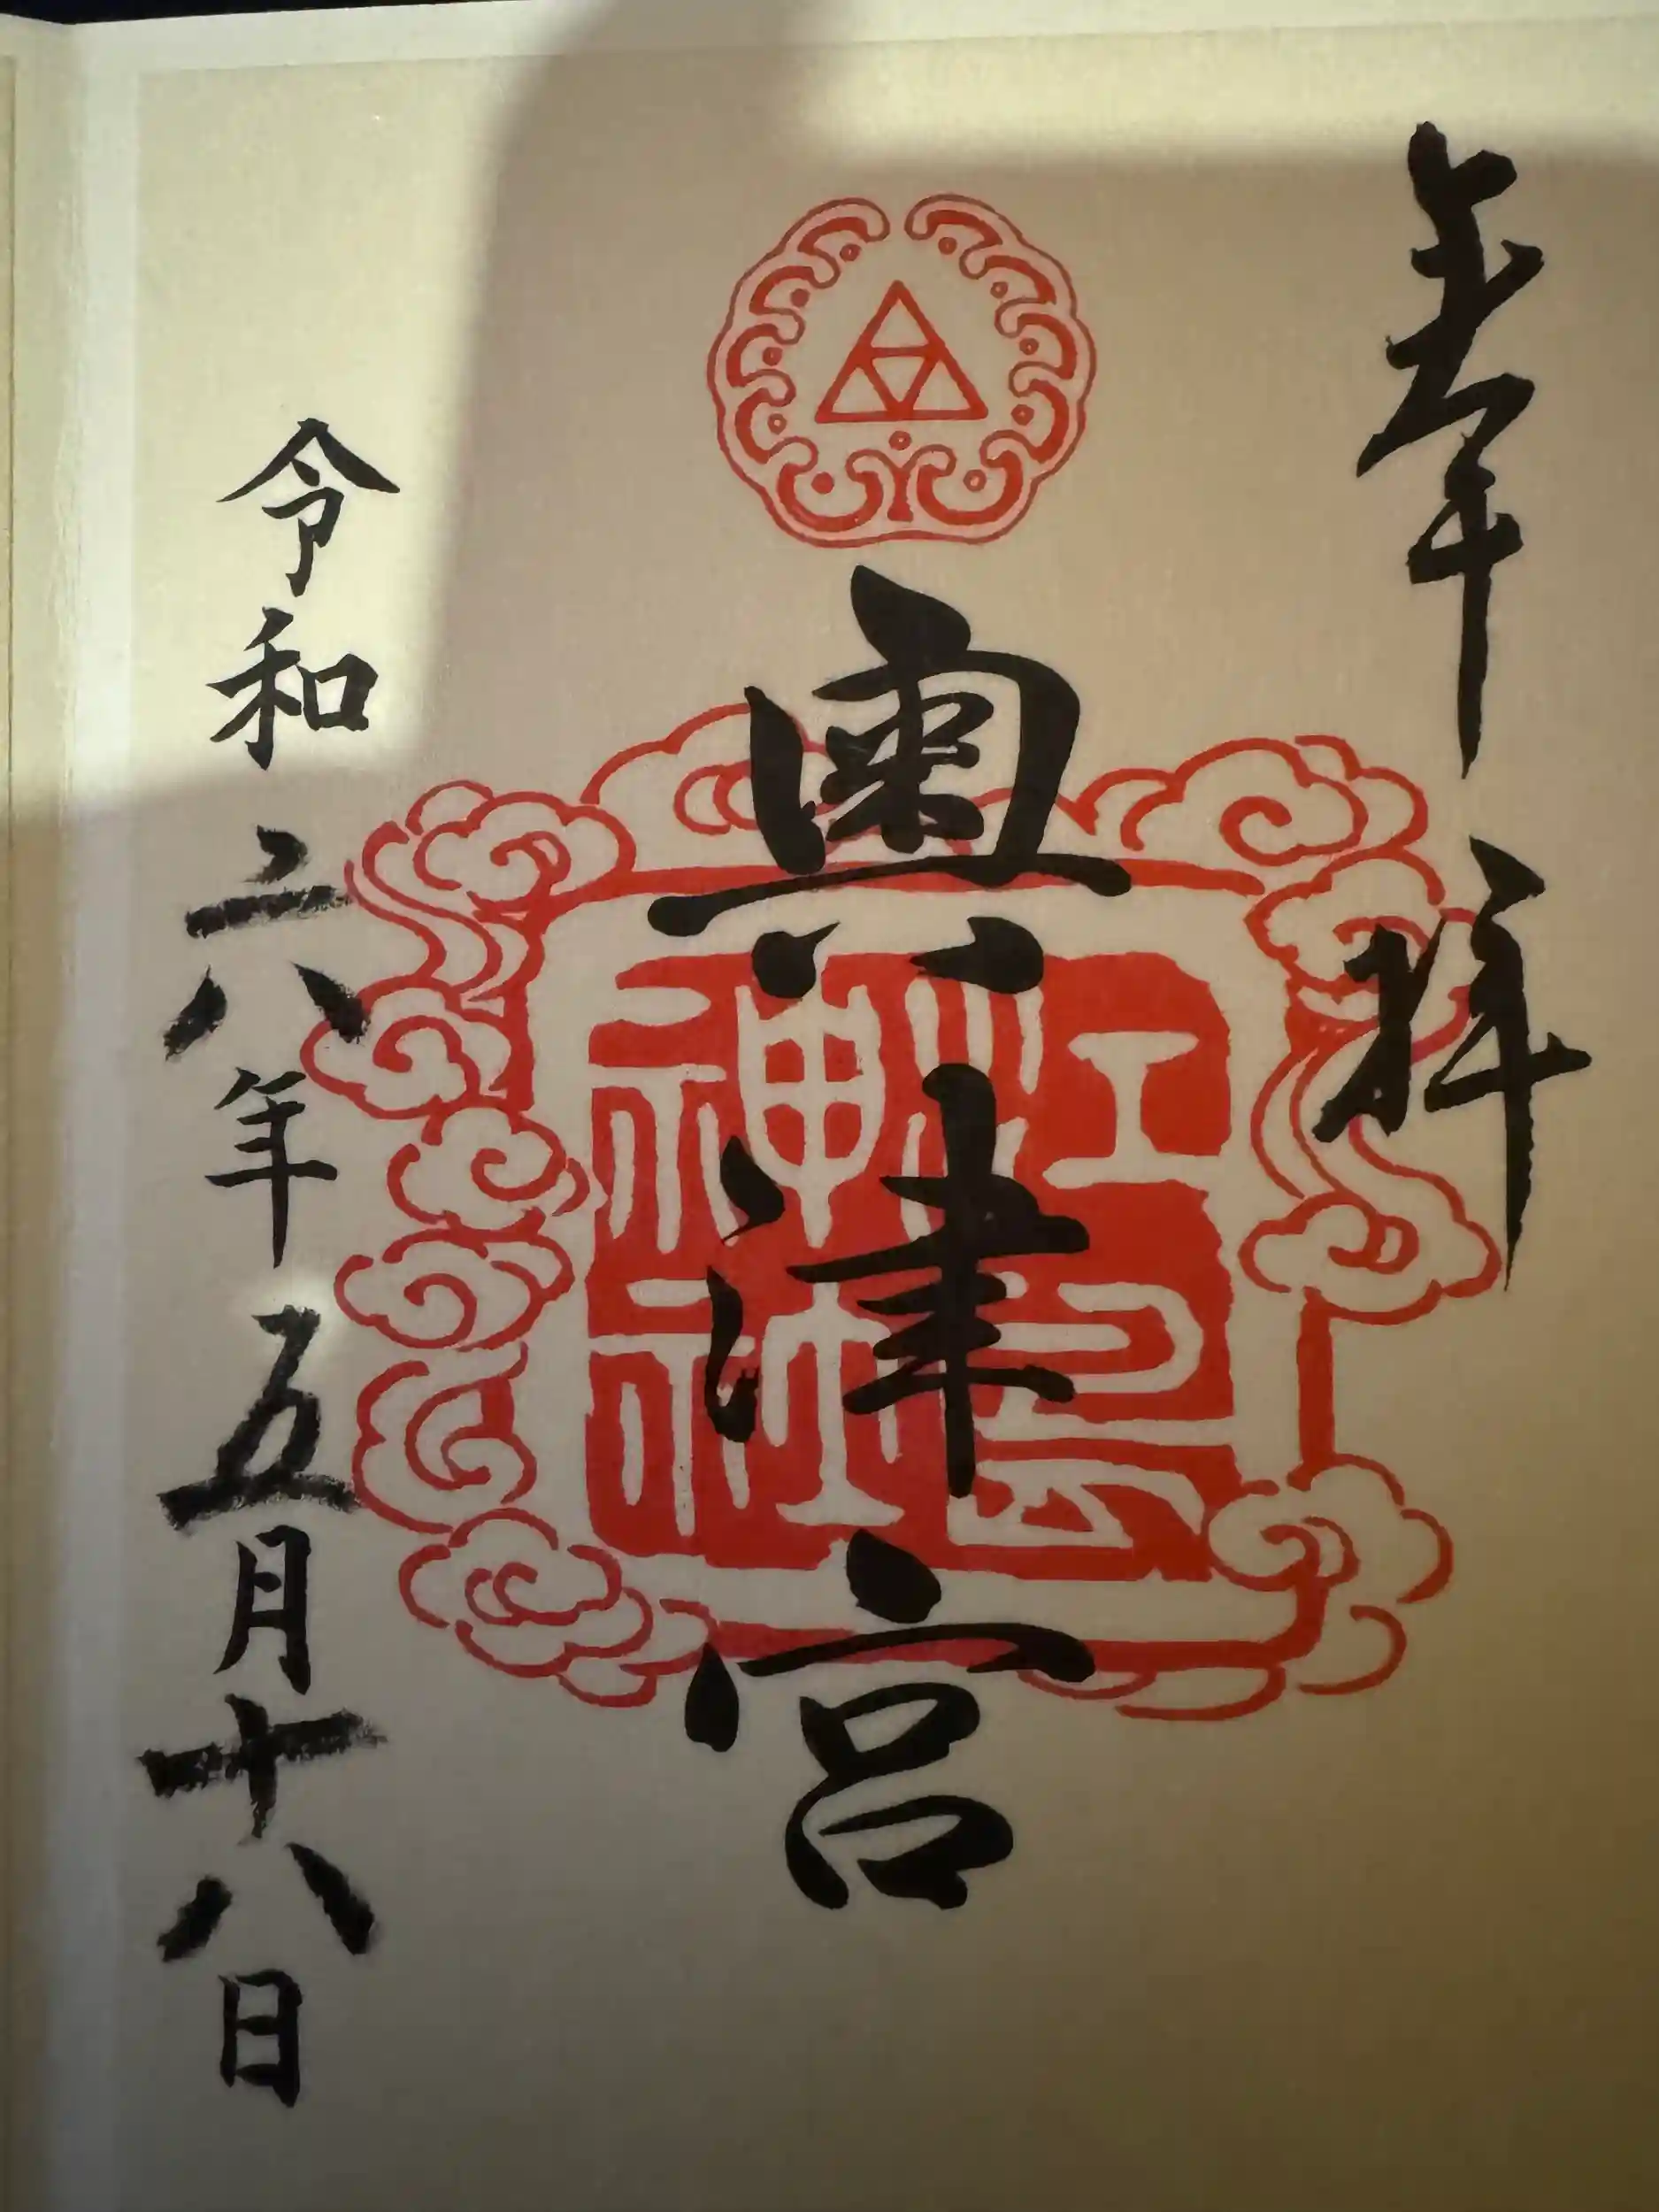 奉拝
奧津宮
江島神社
令和六年五月十八日